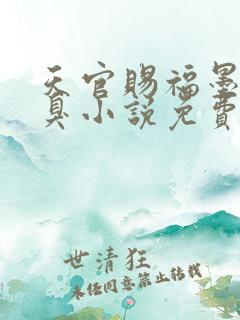 天官賜福墨
真小說免費
世清狂
未经同意禁止转载